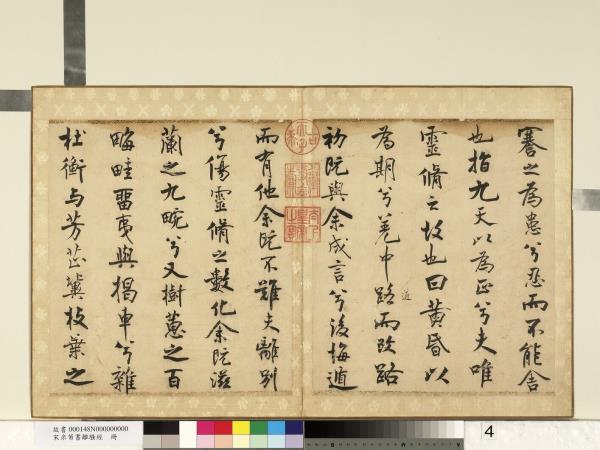 謇之為患兮忍而不能舍
也指九天以為正兮夫唯
靈脩之故也曰黃昏以
為期兮羌中路而改路
道
初既與余成言兮後悔遁
而有他余既不難夫離別
兮傷靈脩之數化余既滋
蘭之九畹兮又樹蕙之百
畮畦留夷與揭車兮雜
杜衡与芳芷冀枝葉之
故書 000148N000000000
宋米芾書離騷經 冊
4